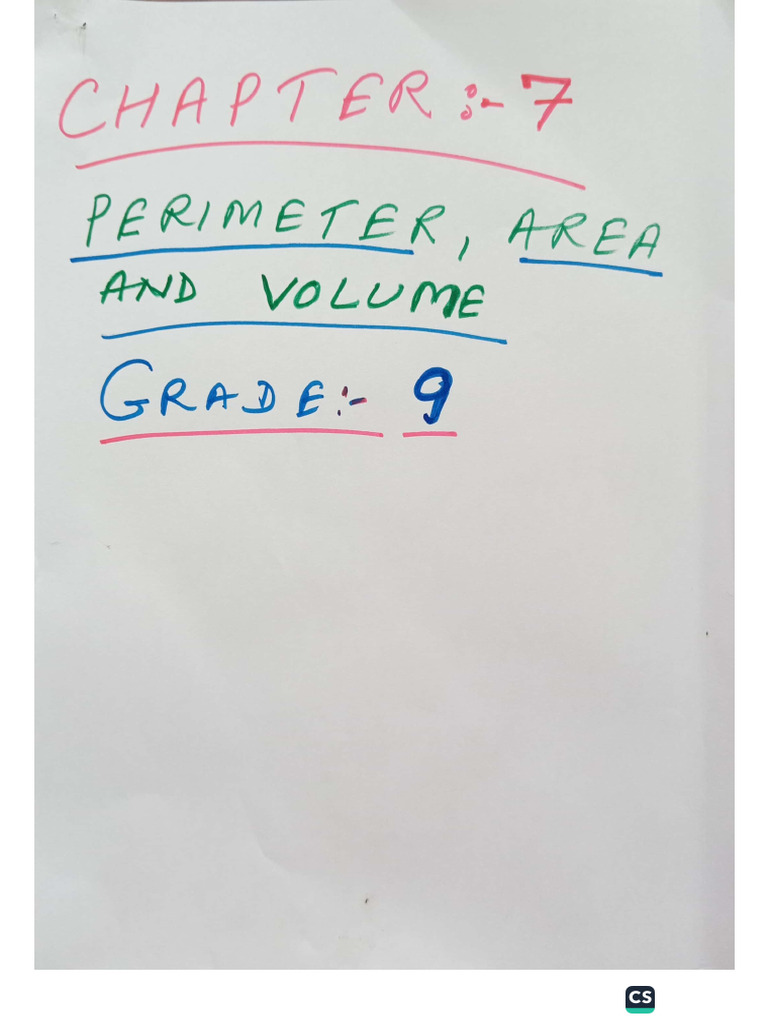 CHAPTER :- 7
PERIMETER, AREA
AND VOLUME
GRADE:- 9
CS